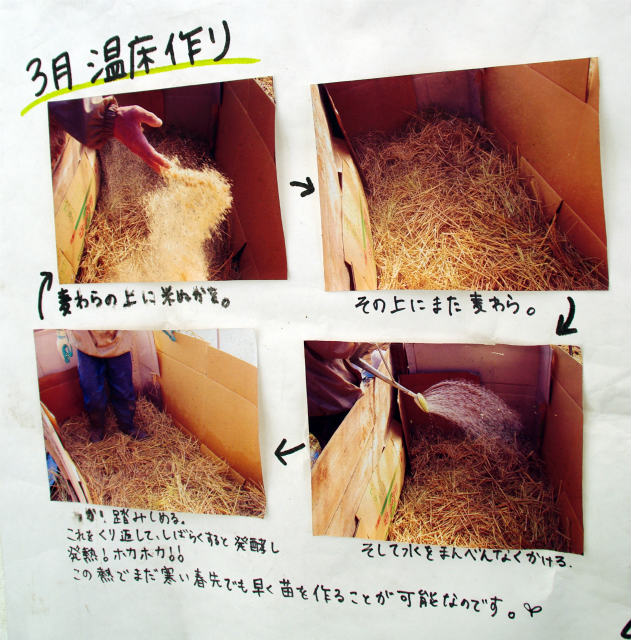 3月 温床作り
麦わらの上に米ぬかを。
その上にまた麦わら。
そして水をまんべんなくかける.
踏みしめる.
これをくり返して、しばらくすると発酵し
発熱!ホカホカ!!
この熱でまだ寒い春先でも早く苗を作ることが可能なのです。